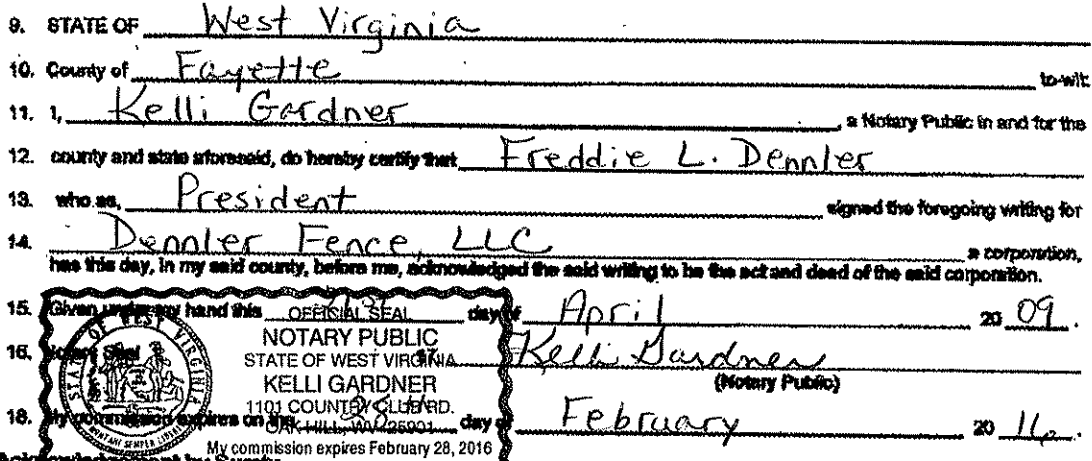 9. STATE OF West Virginia
10. County of Fayette to-wit:
11. I, Kelli Gardner, a Notary Public in and for the
12. county and state aforesaid, do hereby certify that Freddie L. Dennler
13. who as, President signed the foregoing writing for
14. Dennler Fence, LLC a corporation,
has this day, in my said county, before me, acknowledged the said writing to be the act and deed of the said corporation.
15. Given under my hand this 21st day of April 20 09.
16. Notary Seal 17. Kelli Gardner
(Notary Public)
18. My commission expires on the 28th day of February 20 16.
STATE OF WEST VIRGINIA
MONTANI SEMPER LIBERI
OFFICIAL SEAL
NOTARY PUBLIC
STATE OF WEST VIRGINIA
KELLI GARDNER
1101 COUNTRY CLUB RD.
OAK HILL, WV 25901
My commission expires February 28, 2016
Acknowledgement by Surety